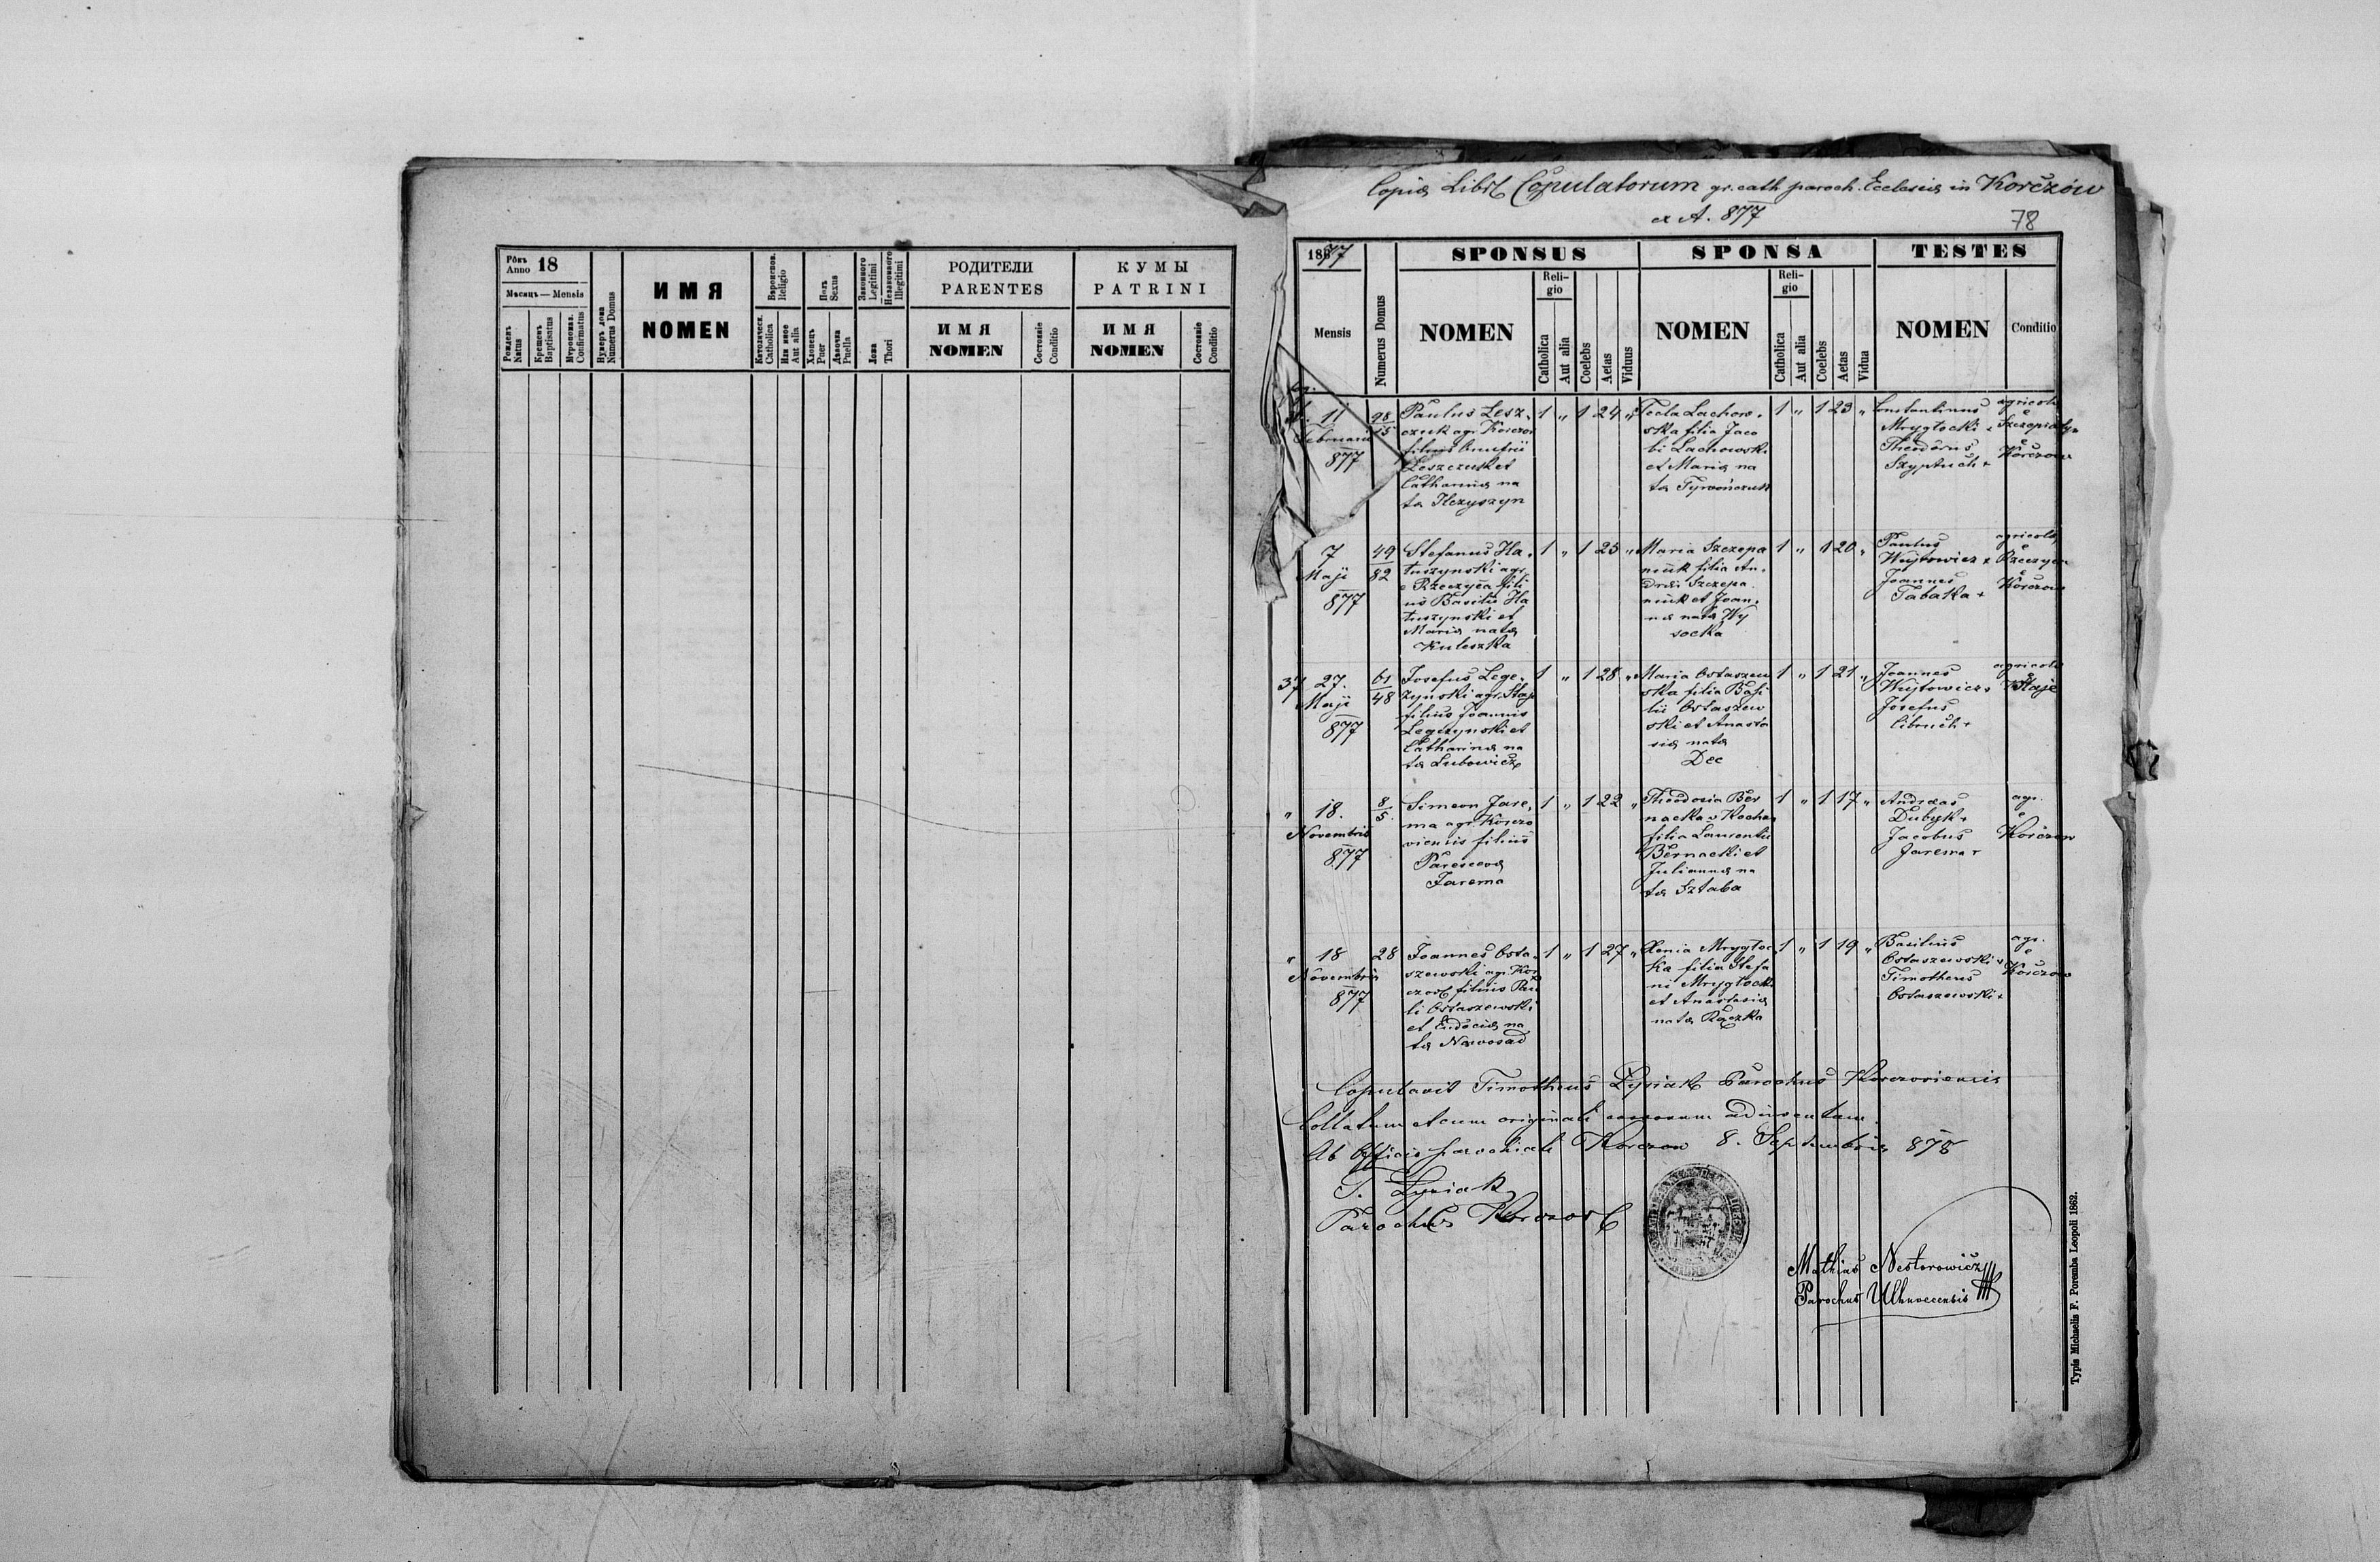 Рôкъ
Anno 18
Мѣсяць — Mensis
Рожденъ
Natus
Крещенъ
Baptisatus
Мѵропомаз.
Confirmatus
Нумеръ дома
Numerus Domus
ИМЯ
NOMEN
Вѣроиспов.
Religio
Католическ.
Catholica
Или иное
Aut alia
Полъ
Sexus
Хлопецъ
Puer
Дѣвочка
Puella
Законного
Legitimi
Незаконного
Illegitimi
Ложа
Thori
РОДИТЕЛИ
PARENTES
ИМЯ
NOMEN
Состояніе
Conditio
КУМЫ
PATRINI
ИМЯ
NOMEN
Состояніе
Conditio
Copia Libri Copulatorum gr. cath paroch. Ecclesia in Korczów
ex A. 877
78
1877
Mensis
Numerus Domus
SPONSUS
NOMEN
Reli-
gio
Catholica
Aut alia
Coelebs
Aetas
Viduus
SPONSA
NOMEN
Reli-
gio
Catholica
Aut alia
Coelebs
Aetas
Vidua
TESTES
NOMEN
Conditio
11
Februarii
877
98
15
Paulus Lesz-
czuk agr. Korczow
filius Onufrii
Leszczuk et
Catharina na
ta Ilczyszyn
1 " 1 24 "
Tecla Lachow-
ska filia Jaco
bi Lachowski
et Maria na
ta Tywonczuk
1 " 1 23 "
Constantinus
Mrygłocki +
Theodorus
Szyptuch +
agricola
e
Szczepiatyn
e
Korczow
7
Maji
877
49
82
Stefanus Ha-
tuszynski agr.
e Rzeczyca fili
us Basilii Ha
tuszynski et
Maria nata
Kuleszka
1 " 1 25 "
Maria Szczepa
niuk filia An-
drea Szczepa
niuk et Joan-
na nata Wy
socka
1 " 1 20 "
Paulus
Wujtowicz +
Joannes
Tabaka +
agricola
e
Rzeczyca
e
Korczow
37 27.
Maji
877
61
48
Josefus Lege-
zynski agr. Staje
filius Joannis
Legezynski et
Catharina na
ta Lubowicz
1 " 1 28 "
Maria Ostaszew
ska filia Basi
lii Ostaszew
ski et Anasta
sia nata
Dec
1 " 1 21 "
Joannes
Wujtowicz +
Josefus
Cibruch +
agricola
e
Staje
" 18.
Novembris
877
8
5.
Simeon Jare-
ma agr. Korczo
viensis filius
Parasceva
Jarema
1 " 1 22 "
Theodosia Ber
nacka v Kochan
filia Laurentii
Bernacki et
Julianna na
ta Sztaba
1 " 1 17 "
Andreas
Dubyk +
Jacobus
Jarema +
agr.
e
Korczow
" 18
Novembris
877
28
Joannes Osta-
szewski agr. Kor
czow filius Pau
li Ostaszewski
et Eudocia na
ta Nowosad
1 " 1 27 "
Xenia Mrygłoc
ka filia Stefa
ni Mrygłocki
et Anastasia
nata Raczka
1 " 1 19 "
Basilius
Ostaszewski +
Timotheus
Ostaszewski +
agr.
e
Korczow
Copulavit Timotheus Lysiak Parochus Korczoviensis
Collatum et cum originali adinventum.
Ab Officio parochiali Korczow 8. Septembris 878
T. Lysiak
Parochus Korczow
Mathias Nestorowicz
Parochus Ulhuvecensis
Typis Michaelis F. Poremba Leopoli 1862.